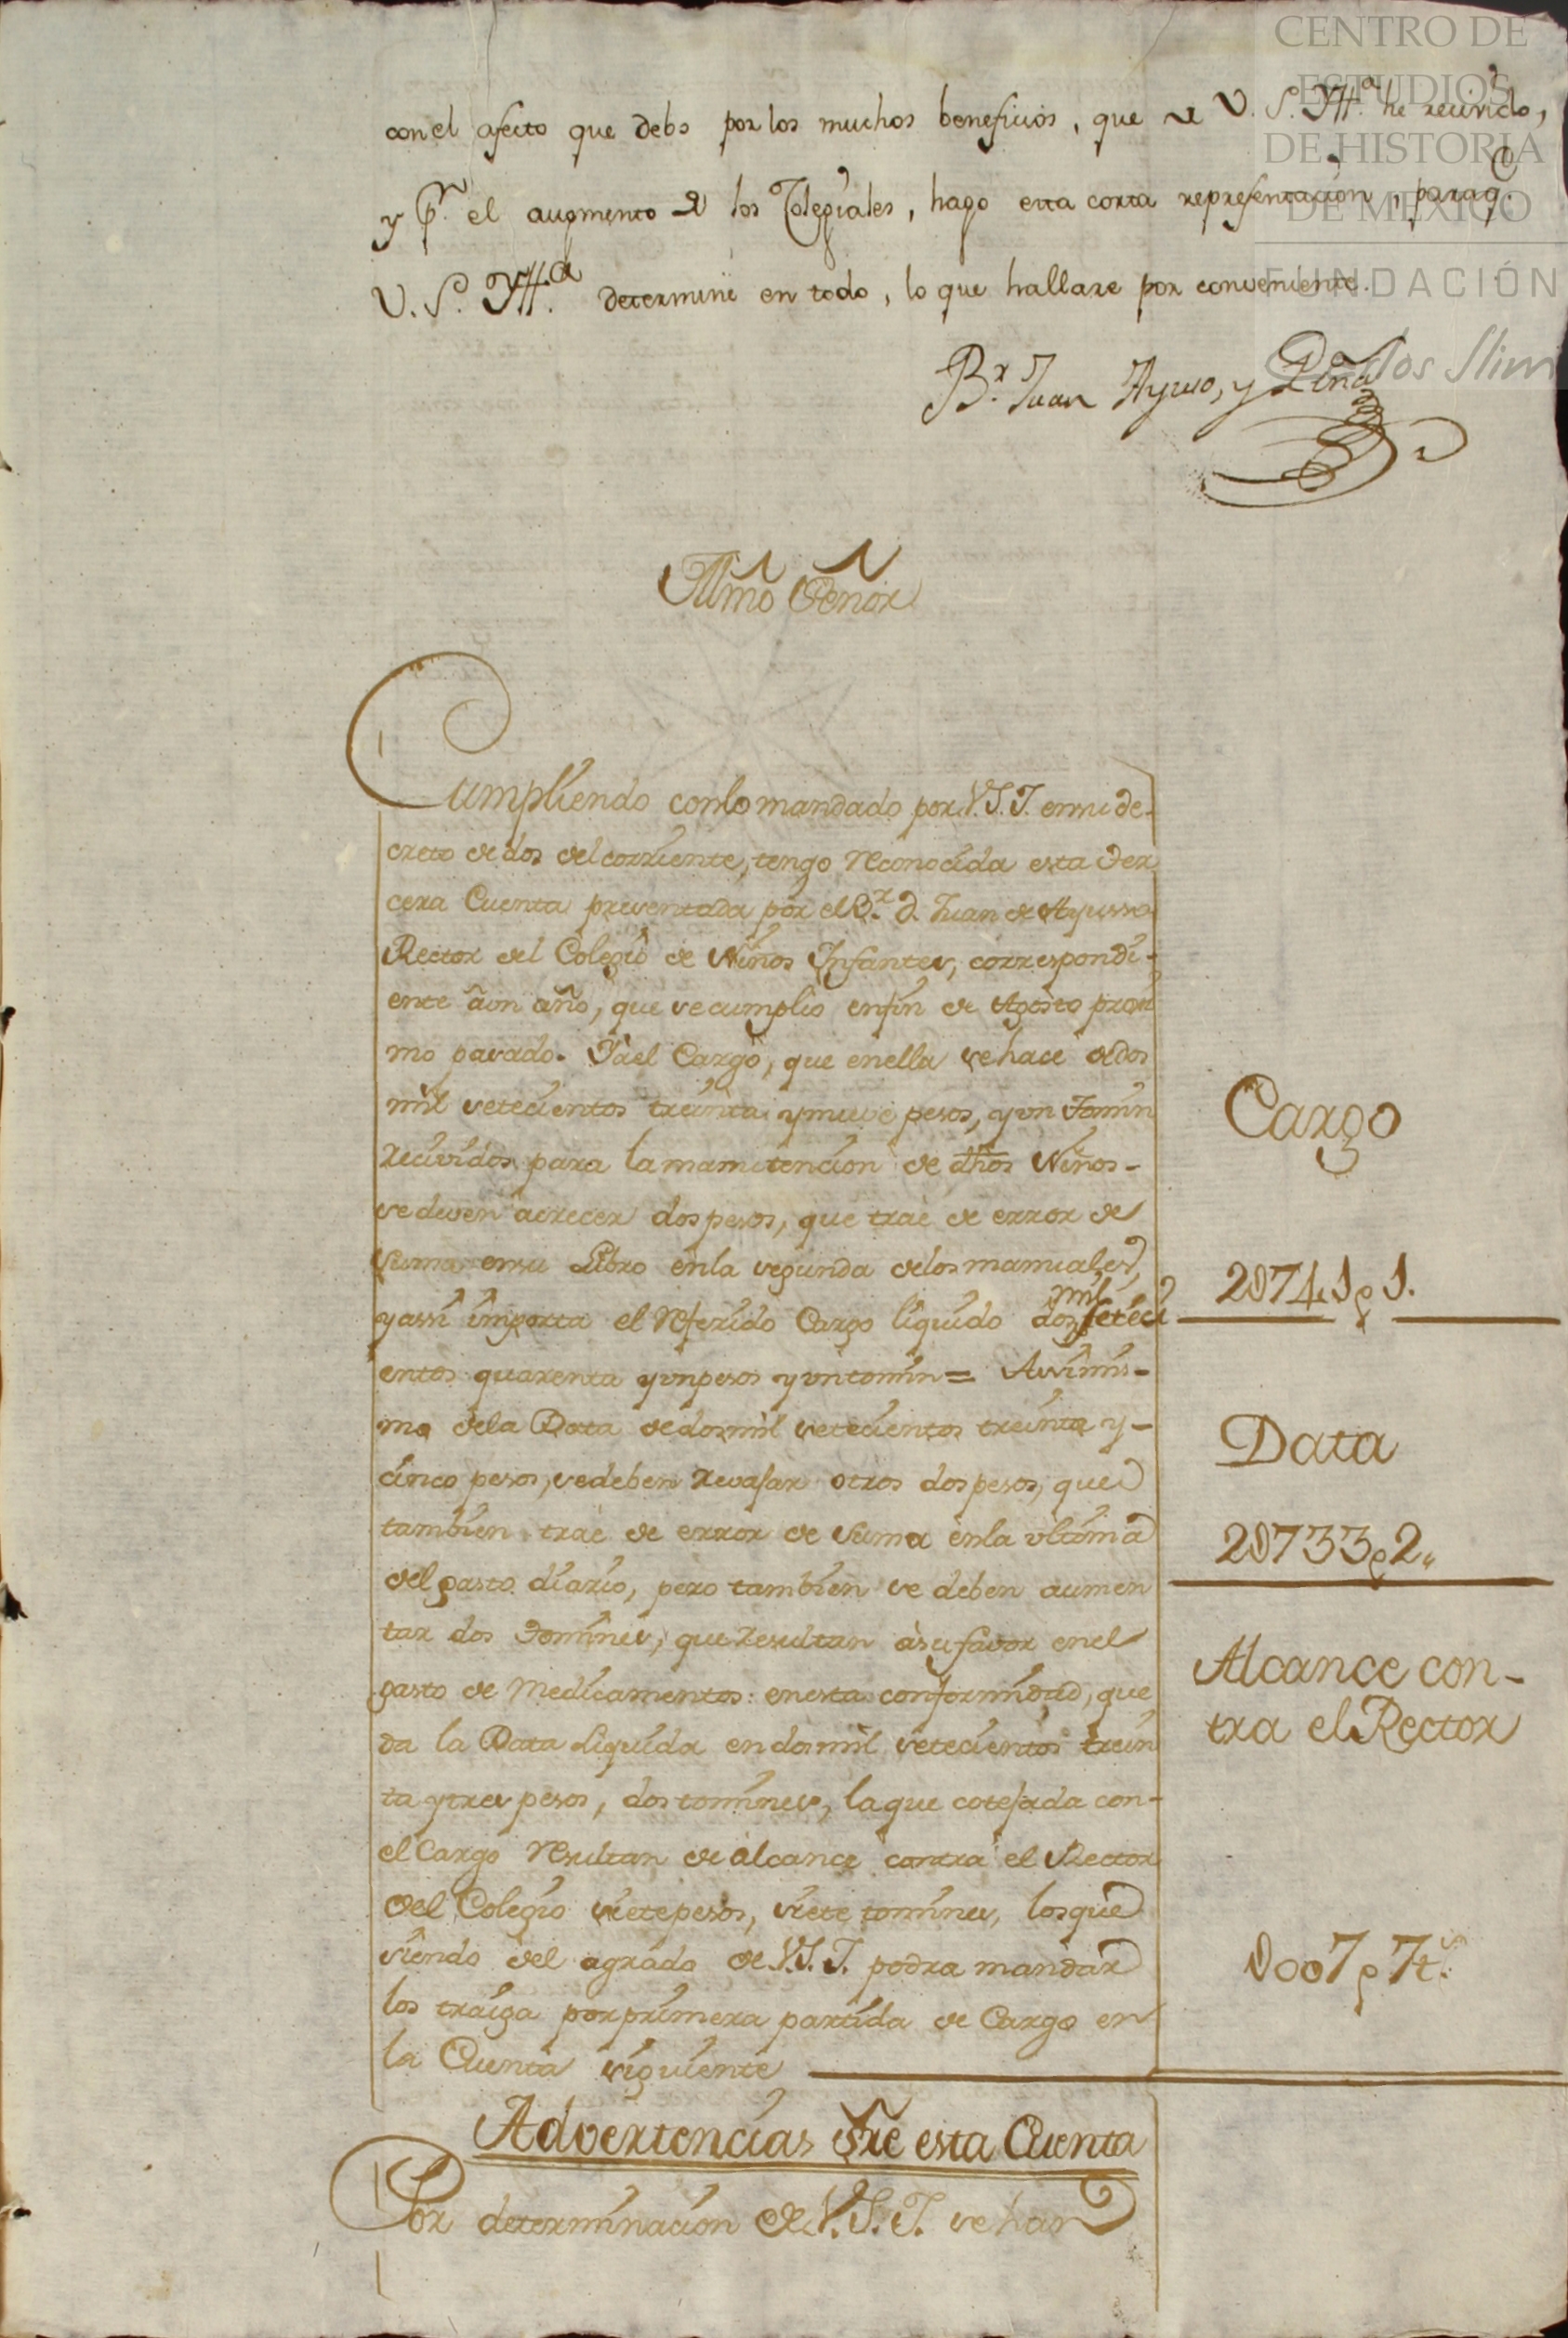 CENTRO DE
ESTUDIOS
DE HISTORIA
DE MÉXICO
FUNDACIÓN
Carlos Slim
con el afecto que debo por los muchos beneficios, que de V. S. Yll.ª he recivido,
y p.r el augmento de los Colegiales, hago esta corta representacion, para q.e
V. S. Yll.ª determine en todo, lo que hallare por conveniente.
B.r Juan Ayuso, y Peña
Yllmô Señor
Cumpliendo con lo mandado por V.S.I. en su de-
creto de dos del corriente, tengo reconocida esta ter
cera Cuenta presentada por el B.r D. Juan de Ayusso
Rector del Colegio de Niños Infantes, correspondi-
ente â un año, que se cumplio en fin de Agosto proxi
mo pasado. Y â el Cargo, que en ella se hace de dos
mil setecientos treinta y nueve pesos, y un tomin
recividos para la manutencion de dhos Niños-
se deven acrecer dos pesos, que trae de error de
suma en su Libro en la segunda de los manuales,
y assi importa el referido Cargo liquido dos mil seteci
entos quarenta y un pesos y un tomin = Assimis-
mo de la Data de dos mil setecientos treinta y-
cinco pesos, se deben revajar otros dos pesos, que
tambien trae de error de suma en la ultima
del gasto diario, pero tambien se deben aumen
tar dos tomines, que resultan à su favor en el
gasto de Medicamentos: en esta conformidad, que
da la Data Liquida en dos mil setecientos trein
ta y tres pesos, dos tomines, la que cotejada con-
el Cargo resultan de alcance contra el Rector
del Colegio siete pesos, siete tomines, los que
siendo del agrado de V.S.I. podra mandar
los traiga por primera partida de Cargo en
la Cuenta siguiente
Cargo
2U741 p 1.
Data
2U733 p 2,,
Alcance con-
tra el Rector
U007 p 7t.s
Advertencias sre esta Cuenta
Por determinacion de V.S.I. se han